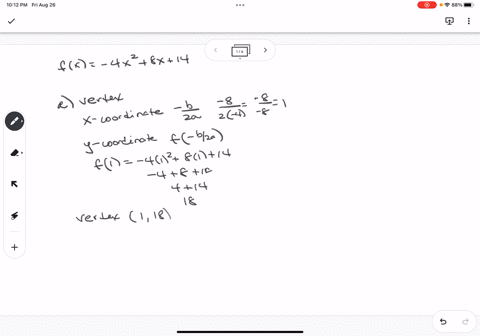 10:12 PM Fri Aug 26
88%
1/6
f(x) = -4x² + 8x + 14
a) vertex
x-coordinate -b/2a -8/2(-4) = -8/-8 = 1
y-coordinate f(-b/2a)
f(1) = -4(1)² + 8(1) + 14
-4 + 8 + 14
4 + 14
18
vertex (1, 18)